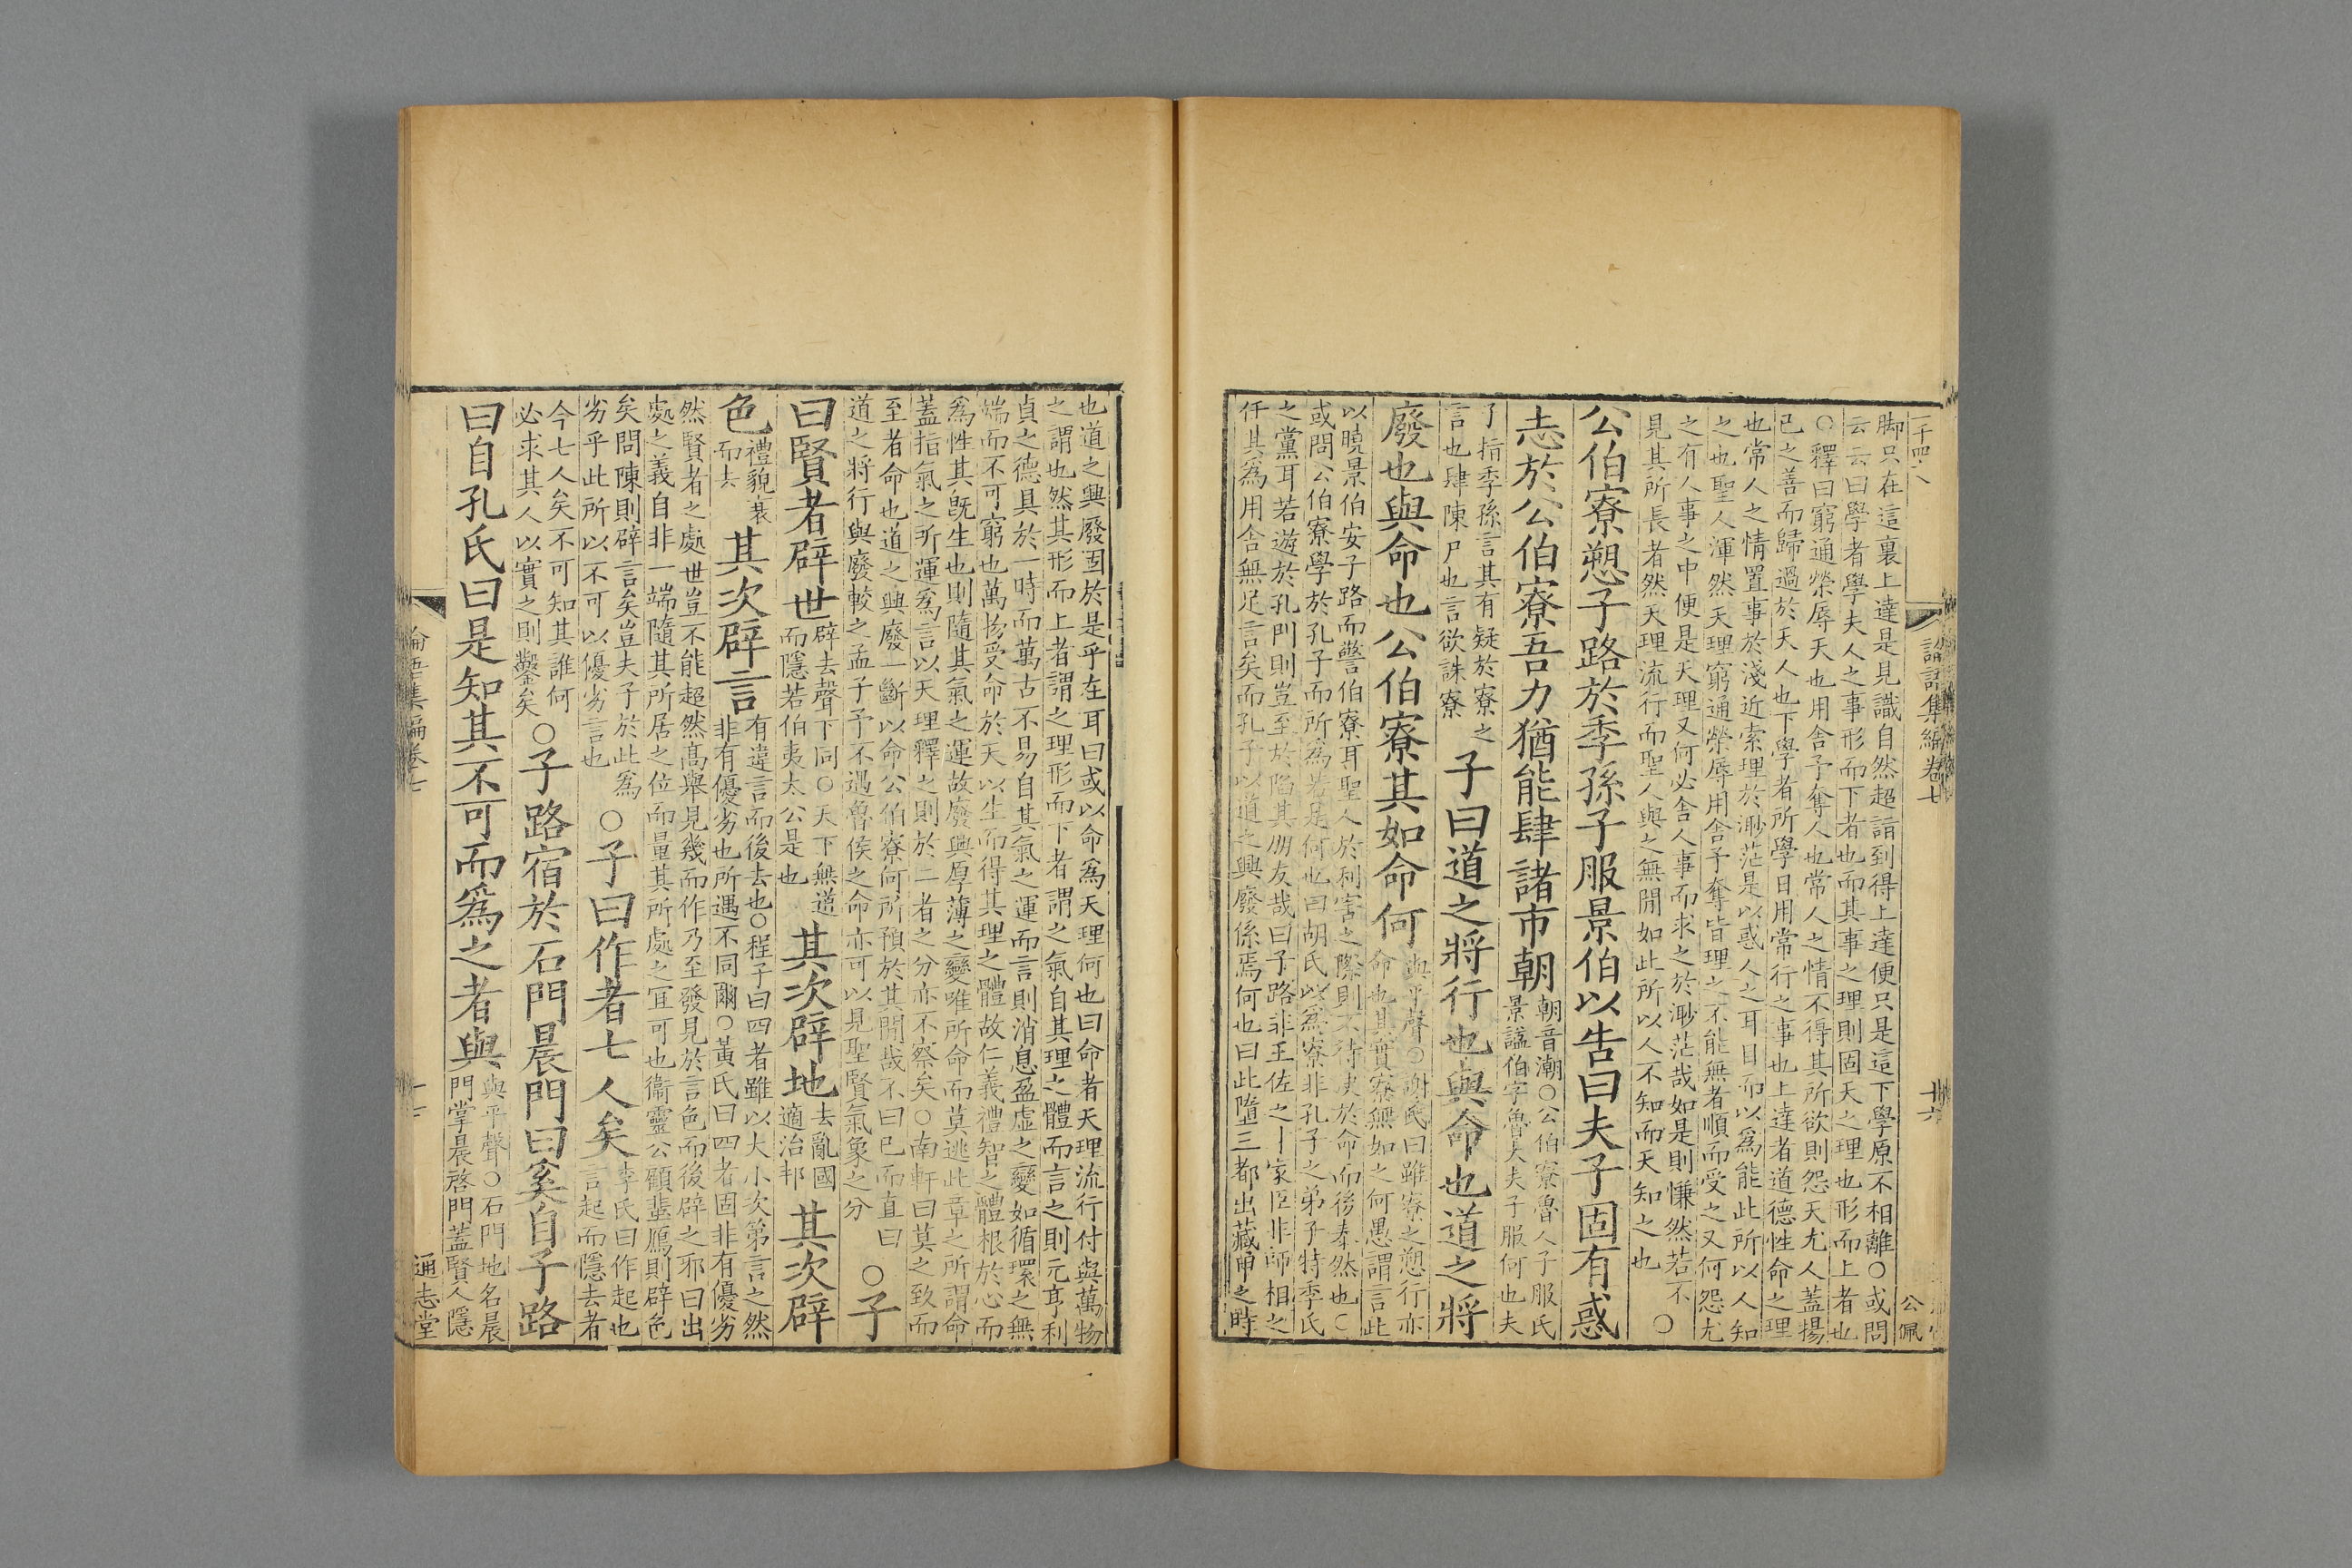 脚只在這裏上達是見識自然超詣到得上達便只是這下學原不相離○或問
云云曰學者學夫人之事形而下者也而其事之理則固天之理也形而上者也
○釋曰窮通榮辱天也用舍予奪人也常人之情不得其所欲則怨天尤人蓋揚
已之善而歸過於天人也下學者所學日用常行之事也上達者道德性命之理
也常人之情置事於淺近索理於渺茫是以惑人之耳目而以為能此所以人知
之也聖人渾然天理窮通榮辱用舍予奪皆理之不能無者順而受之又何怨尤
之有人事之中便是天理又何必舍人事而求之於渺茫哉如是則慊然若不
見其所長者然天理流行而聖人與之無間如此所以人不知而天知之也
○
公伯寮愬子路於季孫子服景伯以告曰夫子固有惑
志於公伯寮吾力猶能肆諸市朝
朝音潮○公伯寮魯人子服氏
景諡伯字魯大夫子服何也夫
了指季孫言其有疑於寮之
言也肆陳尸也言欲誅寮
子曰道之將行也與命也道之將
廢也與命也公伯寮其如命何
與平聲○謝氏曰雖寮之愬行亦
命也其實寮無如之何愚謂言此
以曉景伯安子路而警伯寮耳聖人於利害之際則不待决於命而後泰然也○
或問公伯寮學於孔子而所為若是何也曰胡氏以為寮非孔子之弟子特季氏
之黨耳若遊於孔門則豈至於陷其朋友哉曰子路非王佐之家臣非師相之
仟其為用舍無足言矣而孔子以道之興廢係焉何也曰此墮三都出藏甲之時
論語集編卷七
公佩
也道之興廢固於是乎在耳曰或以命為天理何也曰命者天理流行付與萬物
之謂也然其形而上者謂之理形而下者謂之氣自其理之體而言之則元亨利
貞之德具於一時而萬古不易自其氣之運而言則消息盈虛之變如循環之無
端而不可窮也萬物受命於天以生而得其理之體故仁義禮智之體根於心而
為性其既生也則隨其氣之運故廢興厚薄之變唯所命而莫逃此章之所謂命
蓋指氣之所運為言以天理釋之則於二者之分亦不察矣○南軒曰莫之致而
至者命也道之興廢一斷以命公伯寮何所預於其間哉不曰已而直曰
道之將行與廢較之孟子予不遇魯侯之命亦可以見聖賢氣象之分
○子
曰賢者辟世
辟去聲下同○天下無道
而隱若伯夷太公是也
其次辟地
去亂國
適治邦
其次辟
色
禮貌衰
而去
其次辟言
有違言而後去也○程子曰四者雖以大小次第言之然
非有優劣也所遇不同爾○黃氏曰四者固非有優劣
然賢者之處世豈不能超然高舉見幾而作乃至發見於言色而後辟之耶曰出
處之義自非一端隨其所居之位而量其所處之宜可也衞靈公顧蜚鴈則辟色
矣問陳則辟言矣豈夫子於此為
劣乎此所以不可以優劣言也
○子曰作者七人矣
李氏曰作起也
言起而隱去者
今七人矣不可知其誰何
必求其人以實之則鑿矣
○子路宿於石門晨門曰奚自子路
曰自孔氏曰是知其不可而為之者與
與平聲○石門地名晨
門掌晨啓門蓋賢人隱
論語集編卷七
通志堂